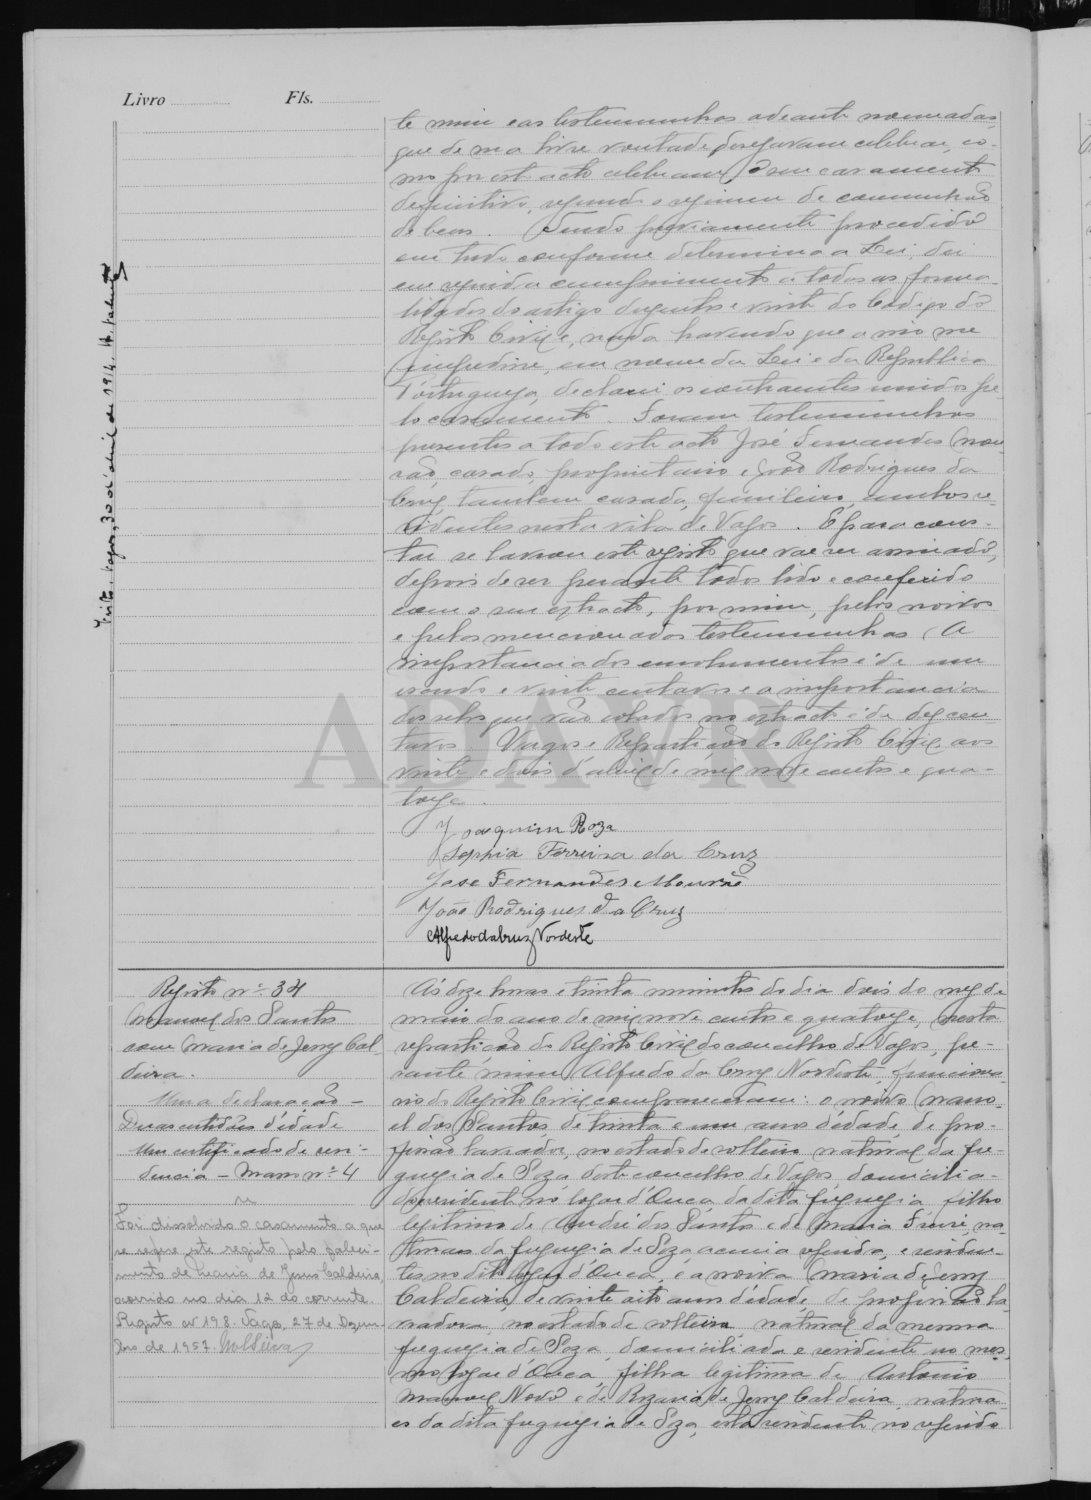 Livro Fls.
te mim e as testemunhas adeante nomeadas,
que de sua livre vontade desejavam celebrar, co-
mo por este acto celebram, o seu casamento
definitivo, segundo o regimen de communhão
de bens. Tendo previamente procedido
em tudo conforme determina a Lei, dei
em seguida cumprimento a todas as forma-
lidades do artigo duzentos e vinte do Codigo do
Registo Civil e, nada havendo que a isso me
impedisse, em nome da Lei e da Republica
Portugueza, declarei os contrahentes unidos pe-
lo casamento. Foram testemunhas
presentes a todo este acto José Fernandes Mou-
rão, casado, proprietario e João Rodrigues da
Cruz, tambem casado, funileiro, ambos re-
sidentes nesta villa de Vagos. E para cons-
tar se lavrou este registo que vae ser assinado,
depois de ser perante todos lido e conferido
com o seu extracto, por mim, pelos noivos
e pelas mencionadas testemunhas. A
importancia dos emolumentos é de um
escudo e vinte centavos e a importancia
dos selos que vão colados no extracto é de dez cen-
tavos. Vagos e Repartição do Registo Civil, aos
vinte e dois d'abril de mil nove centos e qua-
torze.
Joaquim Roza
Sophia Ferreira da Cruz
Jose Fernandes Mourão
João Rodrigues da Cruz
Alfredo da Cruz Nordeste
Visto. Vagos, 30 d'abril de 1914.
ADAVR
Registo nº 34
Manoel dos Santos
com Maria de Jesus Cal
deira.
Uma declaração –
Duas certidões d'edade
Um certificado de resi-
dencia – Maço nº 4
Foi dissolvido o casamento a que
se refere este registo pelo faleci-
mento de Maria de Jesus Caldeira,
ocorrido no dia 12 do corrente.
Registo nº 198. Vagos, 27 de Dezem-
bro de 1957.
Ás doze horas e trinta minutos do dia dois do mez de
maio do ano de mil nove centos e quatorze, nesta
repartição do Registo Civil do concelho de Vagos, pe-
rante mim Alfredo da Cruz Nordeste, funciona-
rio do Registo Civil compareceram: o noivo Mano-
el dos Santos, de trinta e um anos d'edade, de pro-
fissão lavrador, no estado de solteiro natural da fre-
guezia de Soza, deste concelho de Vagos, domicilia-
do e residente no logar d'Ouca da dita freguezia, filho
legitimo de André dos Santos e de Maria Freire, na-
turaes da freguezia de Soza acima referida, e residen-
tes no dito logar d'Ouca, e a noiva Maria de Jesus
Caldeira, de vinte e oito anos d'edade, de profissão la-
vradora, no estado de solteira, natural da mesma
freguezia de Soza, domiciliada e residente no mes-
mo logar d'Ouca, filha legitima de Antonio
Manoel Novo e de Rozaria de Jesus Caldeira, natura-
es da dita freguezia de Soza, esta residente no referido